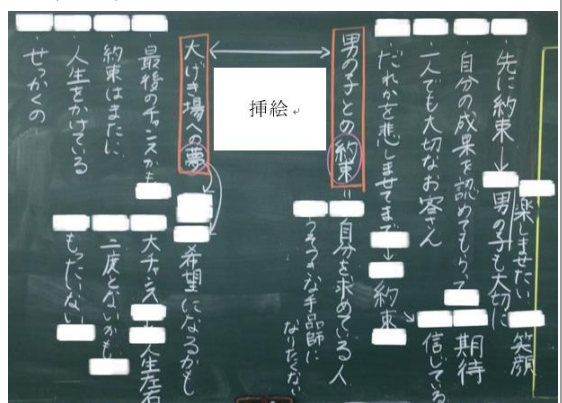 先に約束→男の子も大切に
楽しませたい
笑顔
自分の成果を認めてもらって
期待
一人でも大切なお客さん
信じている
だれかを悲しませてまで
→約束
男の子との約束＝自分を求めている人
うそつきな手品師に
なりたくない
挿絵
大げき場への夢
希望になるかも
最後のチャンスかも
大チャンス
人生左右
約束はまたに、
二度とないかも
人生をかけている
もったいない
せっかくの